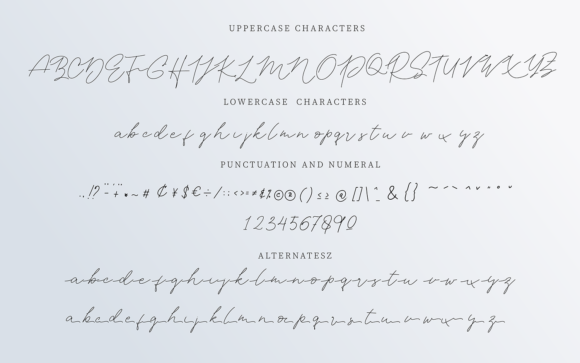 UPPERCASE CHARACTERS
ABCDEFGHIJKLMNOPQRSTUVWXYZ
LOWERCASE CHARACTERS
abcdefghijklmnopqrstuvwxyz
PUNCTUATION AND NUMERAL
1234567890
ALTERNATESZ
abcdefghijklmnopqrstuvwxyz
abcdefghijklmnopqrstuvwxyz